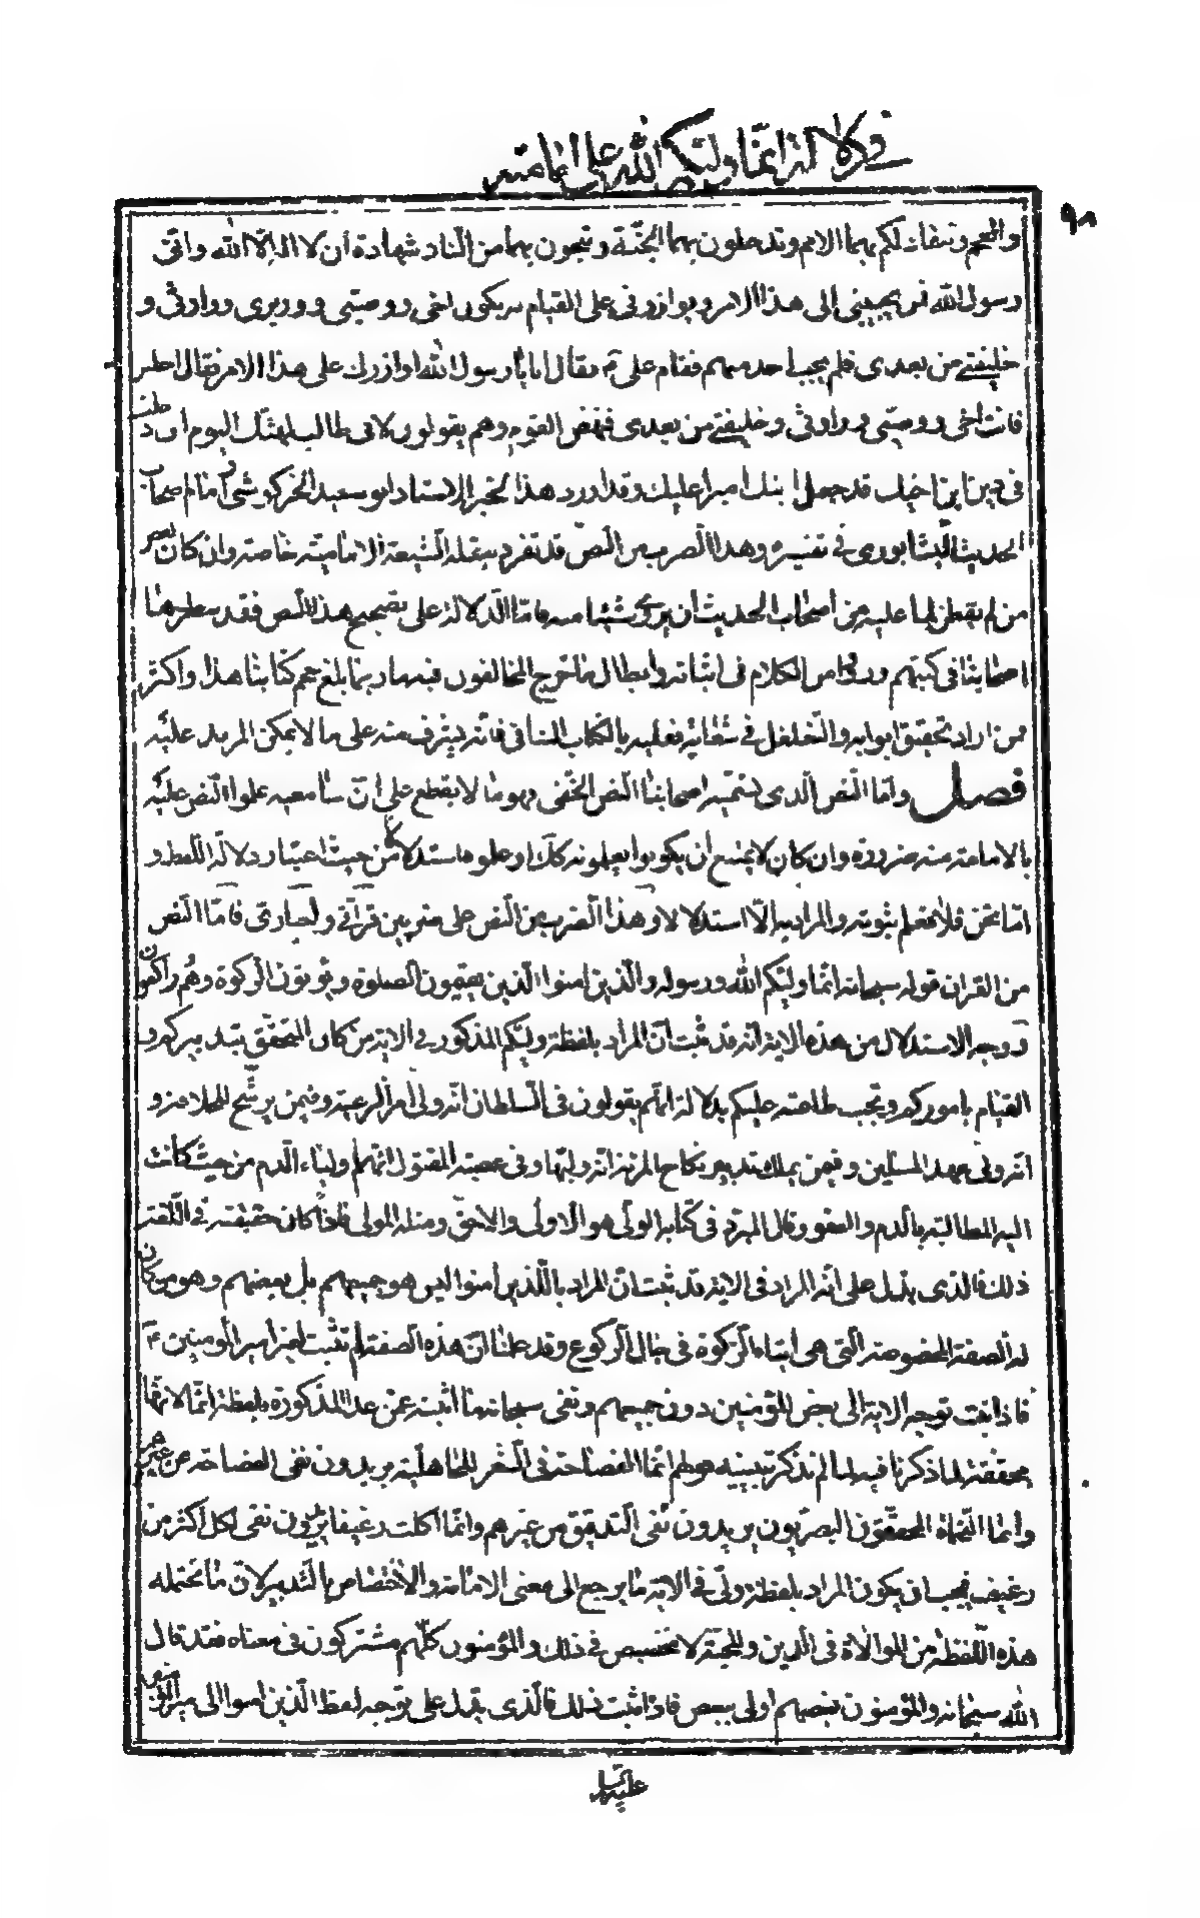 في دلالة انما وليكم الله على امامته
٩٨
والعجم وتنقاد لكم بهما الامم وتدخلون بهما الجنّة وتنجون بهما من النّار شهادة أن لا اله الّا الله وانّى
رسول الله فمن يجيبنى الى هذا الامر ويوازرونى على القيام به يكون اخى ووصيّى ووزيرى ووارثى و
خليفتى من بعدى فلم يجب أحد منهم فقام علىّ ع فقال انا يا رسول الله اوازرك على هذا الامر فقال اجلس
فانت اخى ووصيّى ووارثى وخليفتى من بعدى فنهض القوم وهم يقولون لابى طالب ليهنئك اليوم أن دخلت
فى دين ابن اخيك قد جعل ابنك اميرا عليك وقد اورد هذا الخبر الاستاد ابو سعيد الخركوشى امام اصحاب
الحديث النّيشابورى فى تفسيره وهذا الضرب من النّص قد تفرد بنقله الشّيعة الاماميّة خاصة وان كان بعض
من لم يفطن لما عليه من أصحاب الحديث أن يروى شيئا منه فامّا الدّلالة على تصحيح هذا النّص فقد سطرها
اصحابنا فى كتبهم وردّوا من الكلام فى اثباته وابطال ما خرج المخالفون فيه ما ربما بلغ حجم كتابنا هذا واكثر
فمن اراد تحقيق ابوابه والتّغلغل فى شعابه فعليه بالكتاب الشافى فانّه يشرف منه على ما لا يمكن المزيد عليه
فصل وامّا النّص الّذى يسمّيه اصحابنا النّص الخفى وهو ما لا يقطع على انّ سامعيه علموا النّص عليه
بالامامة منه ضرورة وان كان لا يمتنع ان يكونوا يعلمونه كك او علموه استدلالا من حيث اعتبار دلالة اللفظ و
امّا نحن فلا نعلم ثبوته والمراد به الّا استدلالا وهذا الضرب من النّص على ضربين قرآنى ولخبارى فامّا النّص
من القرآن قوله سبحانه انّما وليّكم الله ورسوله والّذين امنوا الّذين يقيمون الصلوة ويؤتون الزكوة وهُم راكعون
ووجه الاستدلال من هذه الاية انّه قد ثبت انّ المراد بلفظة وليّكم المذكور فى الاية من كان المتحقّق بتدبيركم و
القيام باموركم وتجب طاعته عليكم بدلالة انّهم يقولون فى السّلطان انّه ولى أمر الرعية وفيمن يرشّح للخلافة و
انّه ولى عهد المسلمين وفيمن يملك تدبير نكاح المرئة انّه وليّها وفى عصبة المقتول انّهم أولياء الّدم من حيث كانت
اليه المطالبة بالّدم والعفو وقال المبرّد فى كتابه الولّى هو الاولى والاحقّ ومثله المولى فاذا كان حقيقته فى اللّغة
ذلك فالذى يدل على انّه المراد فى الاية قد ثبت انّ المراد بالّذين أمنوا ليس هو جميعهم بل بعضهم وهو من كان
له الصفة المخصوصة الّتى هى ايتاء الزكوة فى حال الركوع وقد علمنا انّ هذه الصفة لم تثبت لغير أمير المومنين ع
فاذا ثبت توجه الاية الى بعض المؤمنين دون جميعهم ونفى سبحانه ما اثبته عمّن عدا المذكورة بلفظة انّما لانّها
محققة لما ذكرنا فيه لما لم نذكر تبيّنه قولهم انّما الفصاحة فى الشعر للجاهليّة يريدون نفى الفصاحة عن غيرهم
وانما النّحاة المحقّقون البصرّيون يريدون نفى التدقيق من غيرهم وانّما اكلت رغيفا يريدون نفى اكل اكثر من
رغيف فيجب ان يكون المراد بلفظة ولّى فى الاية ما يرجع الى معنى الامامة والاختصاص بالتّدبير لانّ ما تحتمله
هذه اللّفظة من الموالاة فى الدّين والمحبّة لا تخصيص فى ذلك والمؤمنون كلّهم مشتركون فى معناه فقد قال
الله سبحانه والمؤمنون بعضهم أولى ببعض فاذا ثبت ذلك فالّذى يدل على توّجه لفظ الّذين امنوا الى امير المؤمنين
عليه السلام